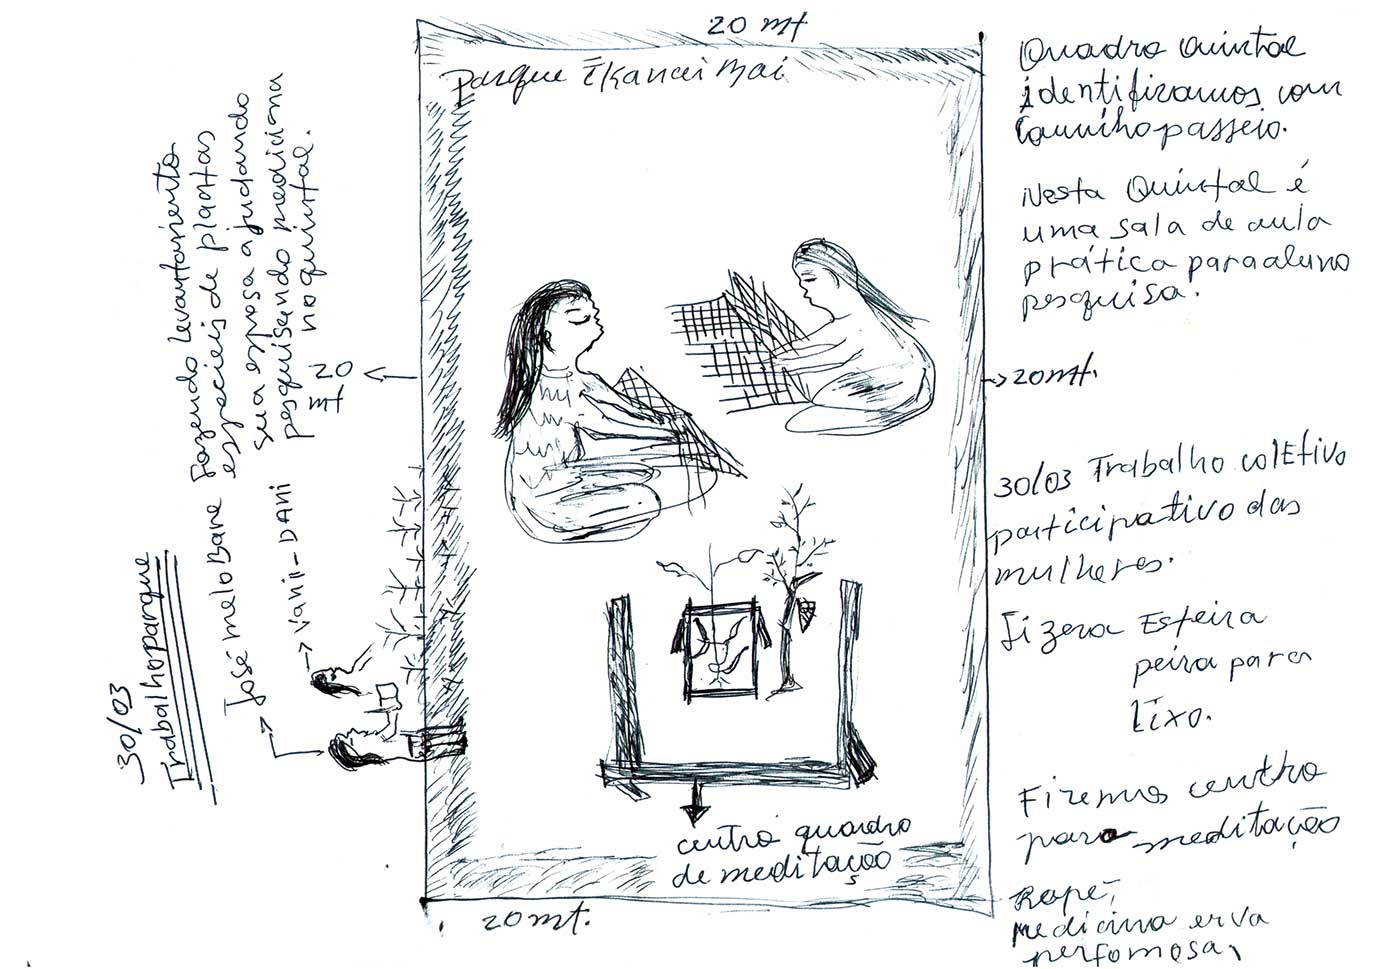 20 mt
Parque Ĩkanai Bai
Quadro Quintal
identifizamos com
Caminho passeio.
Nesta Quintal é
uma sala de aula
prática para aluno
pesquisa.
20
mt
20 mt.
30/03 Trabalho coletivo
participativo das
mulheres.
Fizera Esteira
para
Lixo.
Fizemos centro
para meditação
Rapé,
medicina erva
perfomosa,
centro quadro
de meditação
20 mt.
30/03
Trabalho parque
José melo Bane Fazendo levantamento
especieis de plantas
sua esposa ajudando
pesquisando medicina
no quintal.
Vanii - DANI